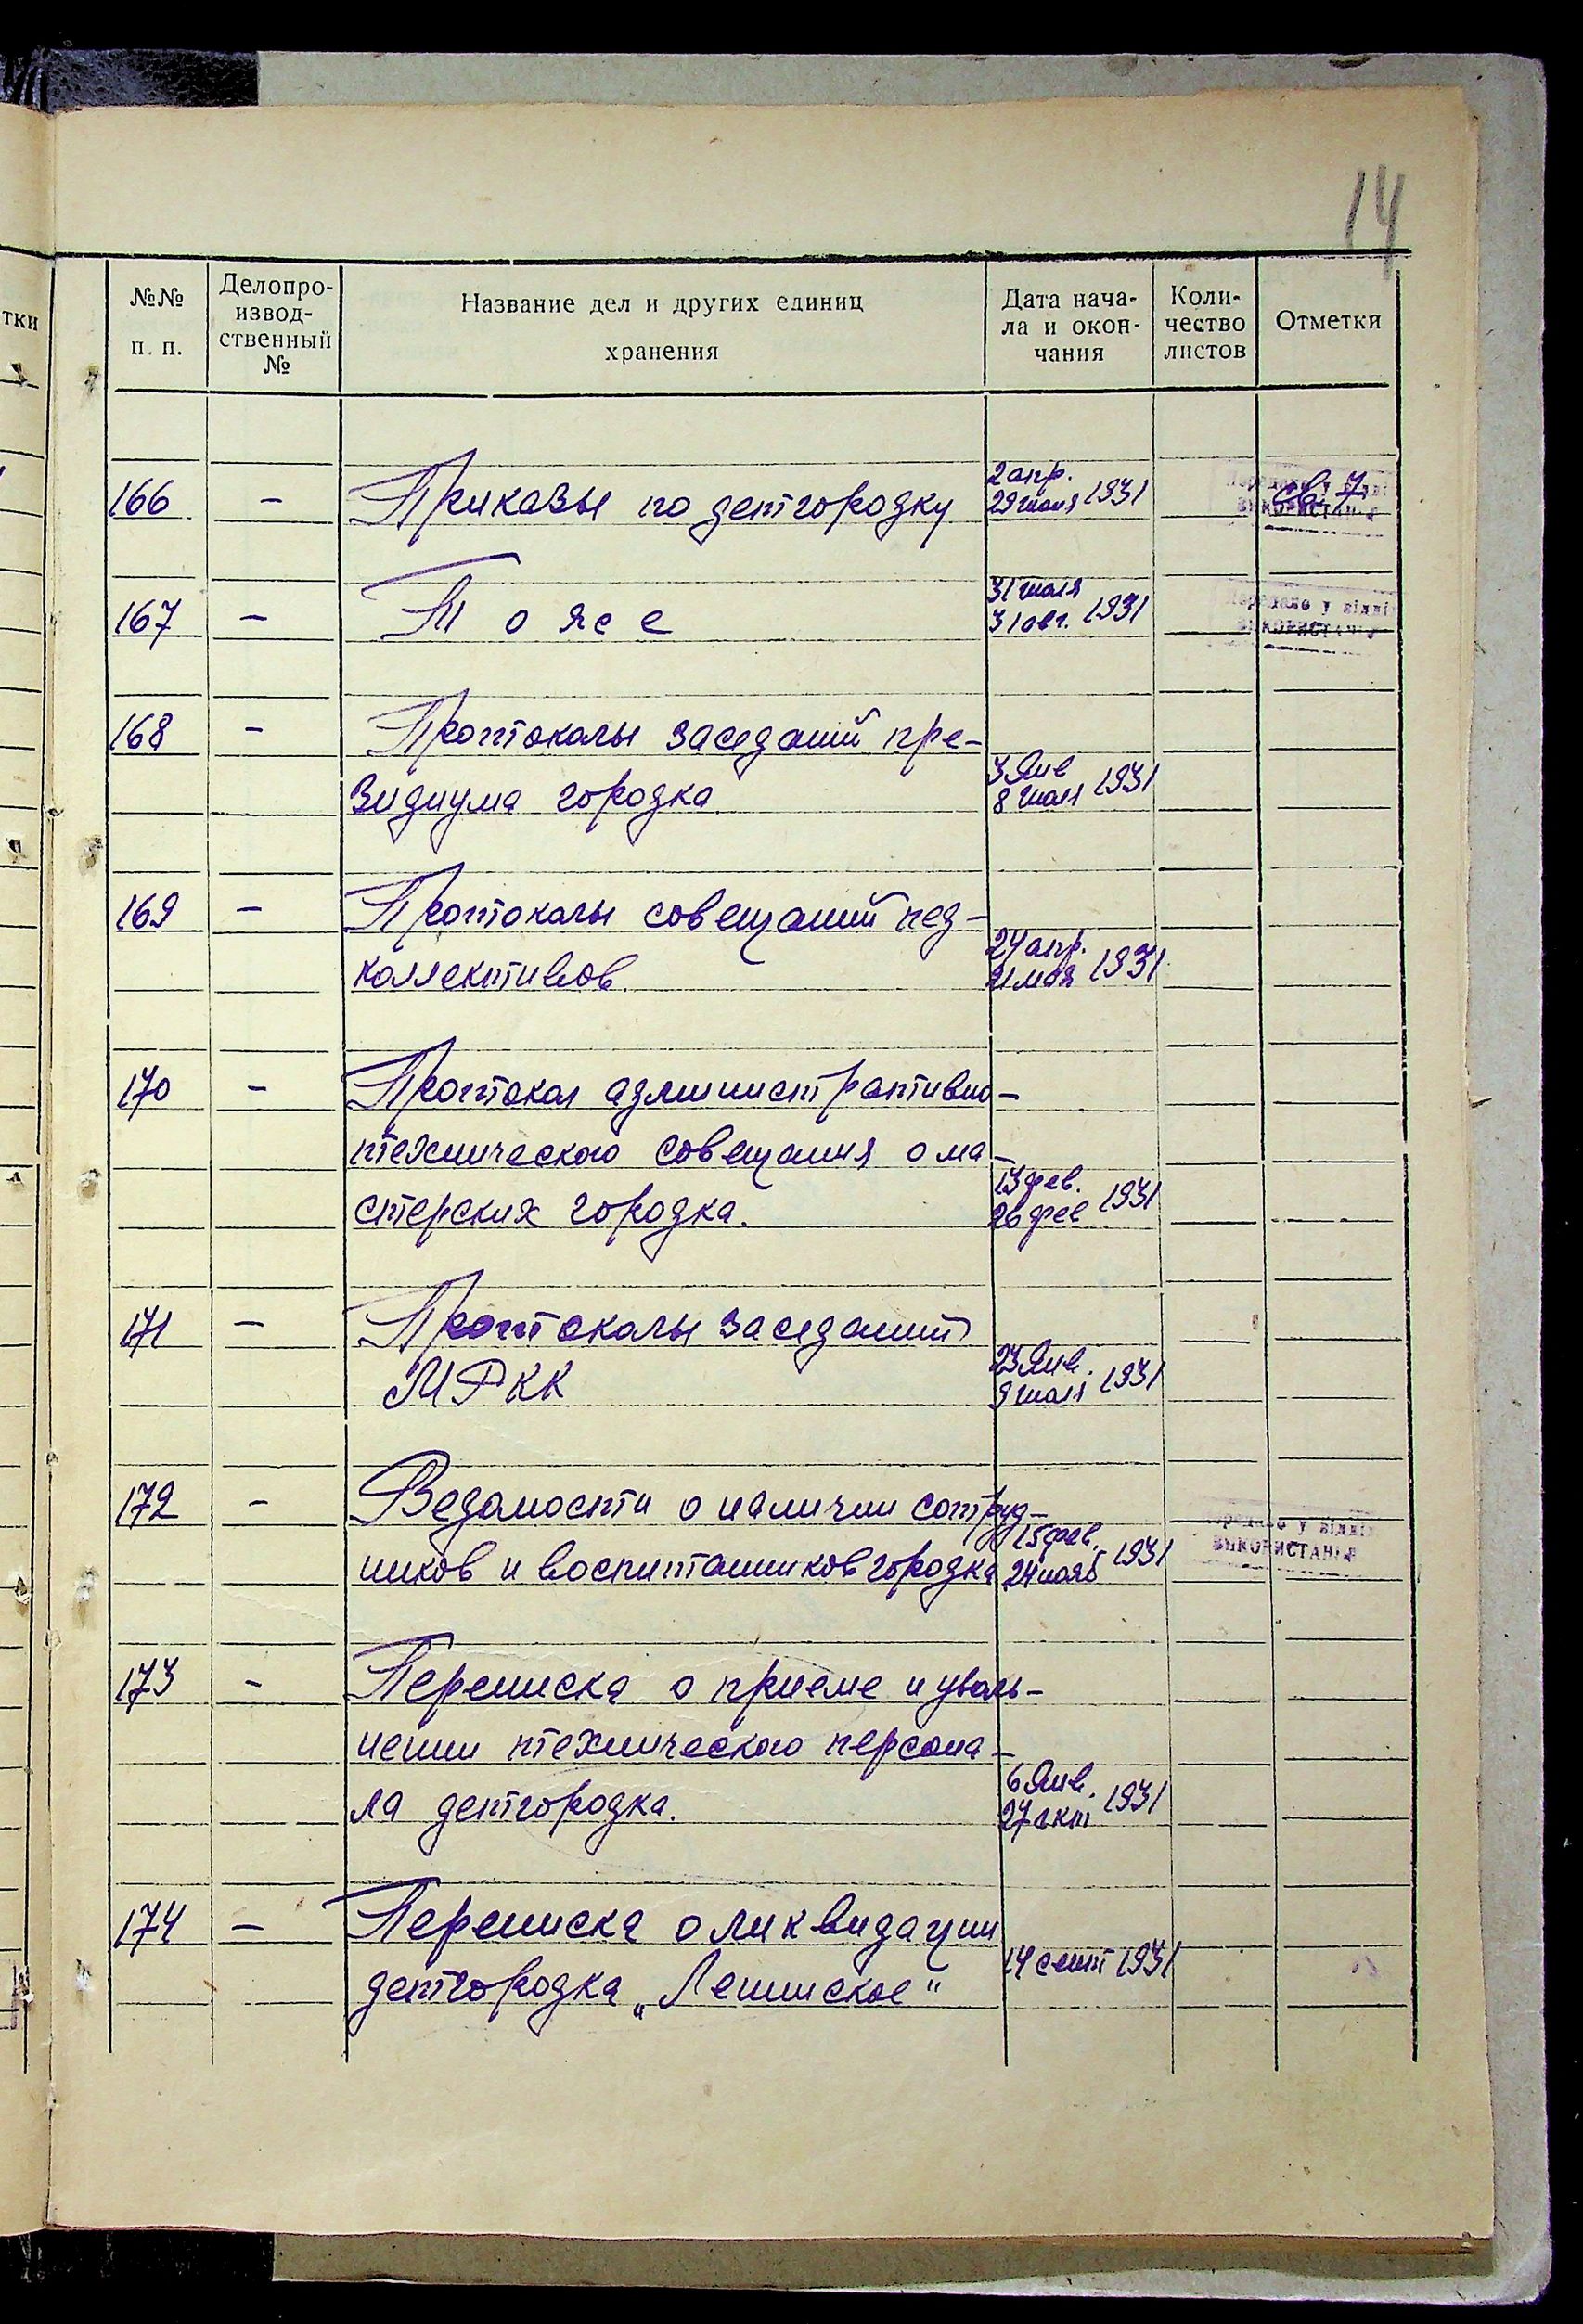 14
тки
№№ п. п.
Делопро-
извод-
ственный
№
Название дел и других единиц
хранения
Дата нача-
ла и окон-
чания
Коли-
чество
листов
Отметки
166 - Приказы по детгородку 2 апр. 29 июня 1931 св 7
Передано у відділ
використання
167 - То же 31 июля 31 авг. 1931
Передано у відділ
використання
168 - Протоколы заседаний пре-
зидиума городка 3 янв 8 июля 1931
169 - Протоколы совещаний пед-
коллективов. 24 апр. мая 1931
170 - Протокол административно-
технического совещания о ма-
стерских городка. 13 фев. 26 фев 1931
171 - Протоколы заседаний
МРКК 23 янв. 9 июля 1931
172 - Ведомости о наличии сотруд-
ников и воспитанников городка 15 фев. 24 нояб 1931
Передано у відділ
використання
173 - Переписка о приеме и уволь-
нении технического персона-
ла детгородка. 6 янв. 27 окт 1931
174 - Переписка о ликвидации
детгородка „Ленинское" 14 сент 1931